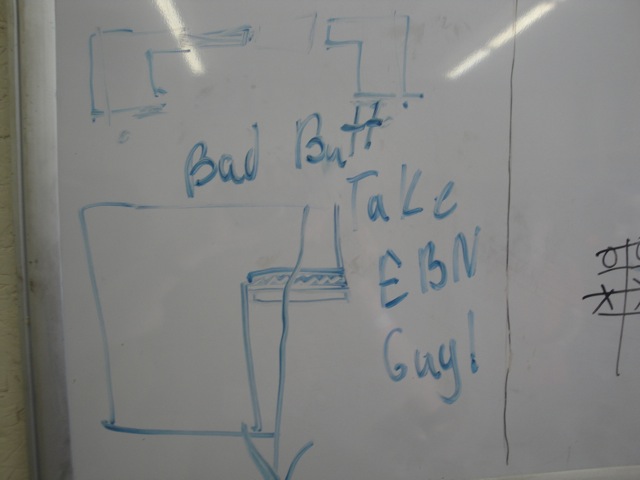 Bad Butt
Take
EBN
Guy!
O
X